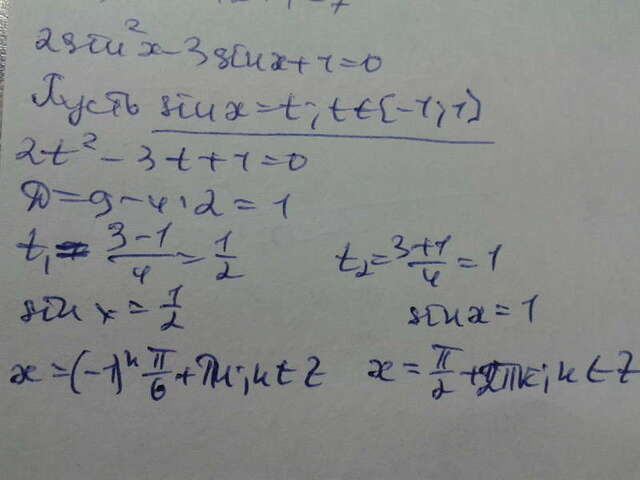 2sin²x-3sinx+1=0
Пусть sinx=t; t∈[-1;1]
2t²-3t+1=0
D=9-4·2=1
t₁=(3-1)/4=1/2 t₂=(3+1)/4=1
sin x=1/2 sinx=1
x=(-1)ᵏ π/6+πk; k∈Z x=π/2+2πk; k∈Z